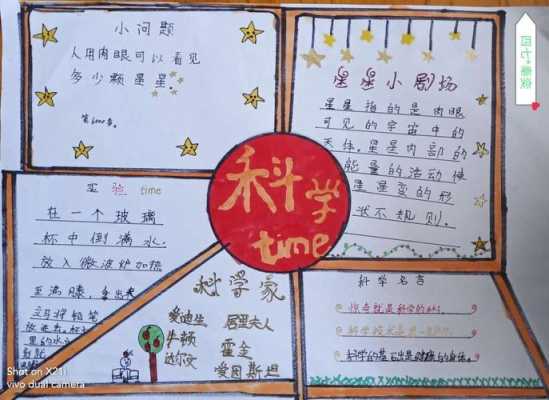 小问题
人用肉眼可以看见
多少颗星星.
星星小剧场
星星指的是肉眼
可见的宇宙中的
天体.星星内部的
能量的活动使
星星变的形
状不规则.
科学
time
实验time
在一个玻璃
杯中倒满水.
放入微波炉加热
至沸腾,拿出来
科学家
爱迪生 居里夫人
牛顿 霍金
达尔文 爱因斯坦
科学名言
惊奇就是科学的
科学的基石出是健康的身体.
Shot on X21i
vivo dual camera